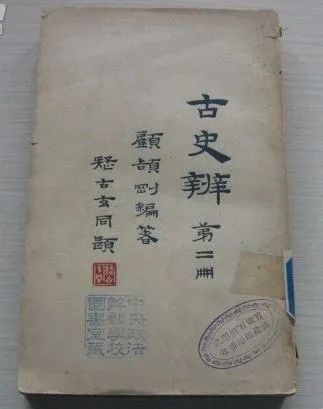 古史辨 第二冊
顧頡剛編著
疑古玄同題
中央政法
幹部學校
圖書室藏